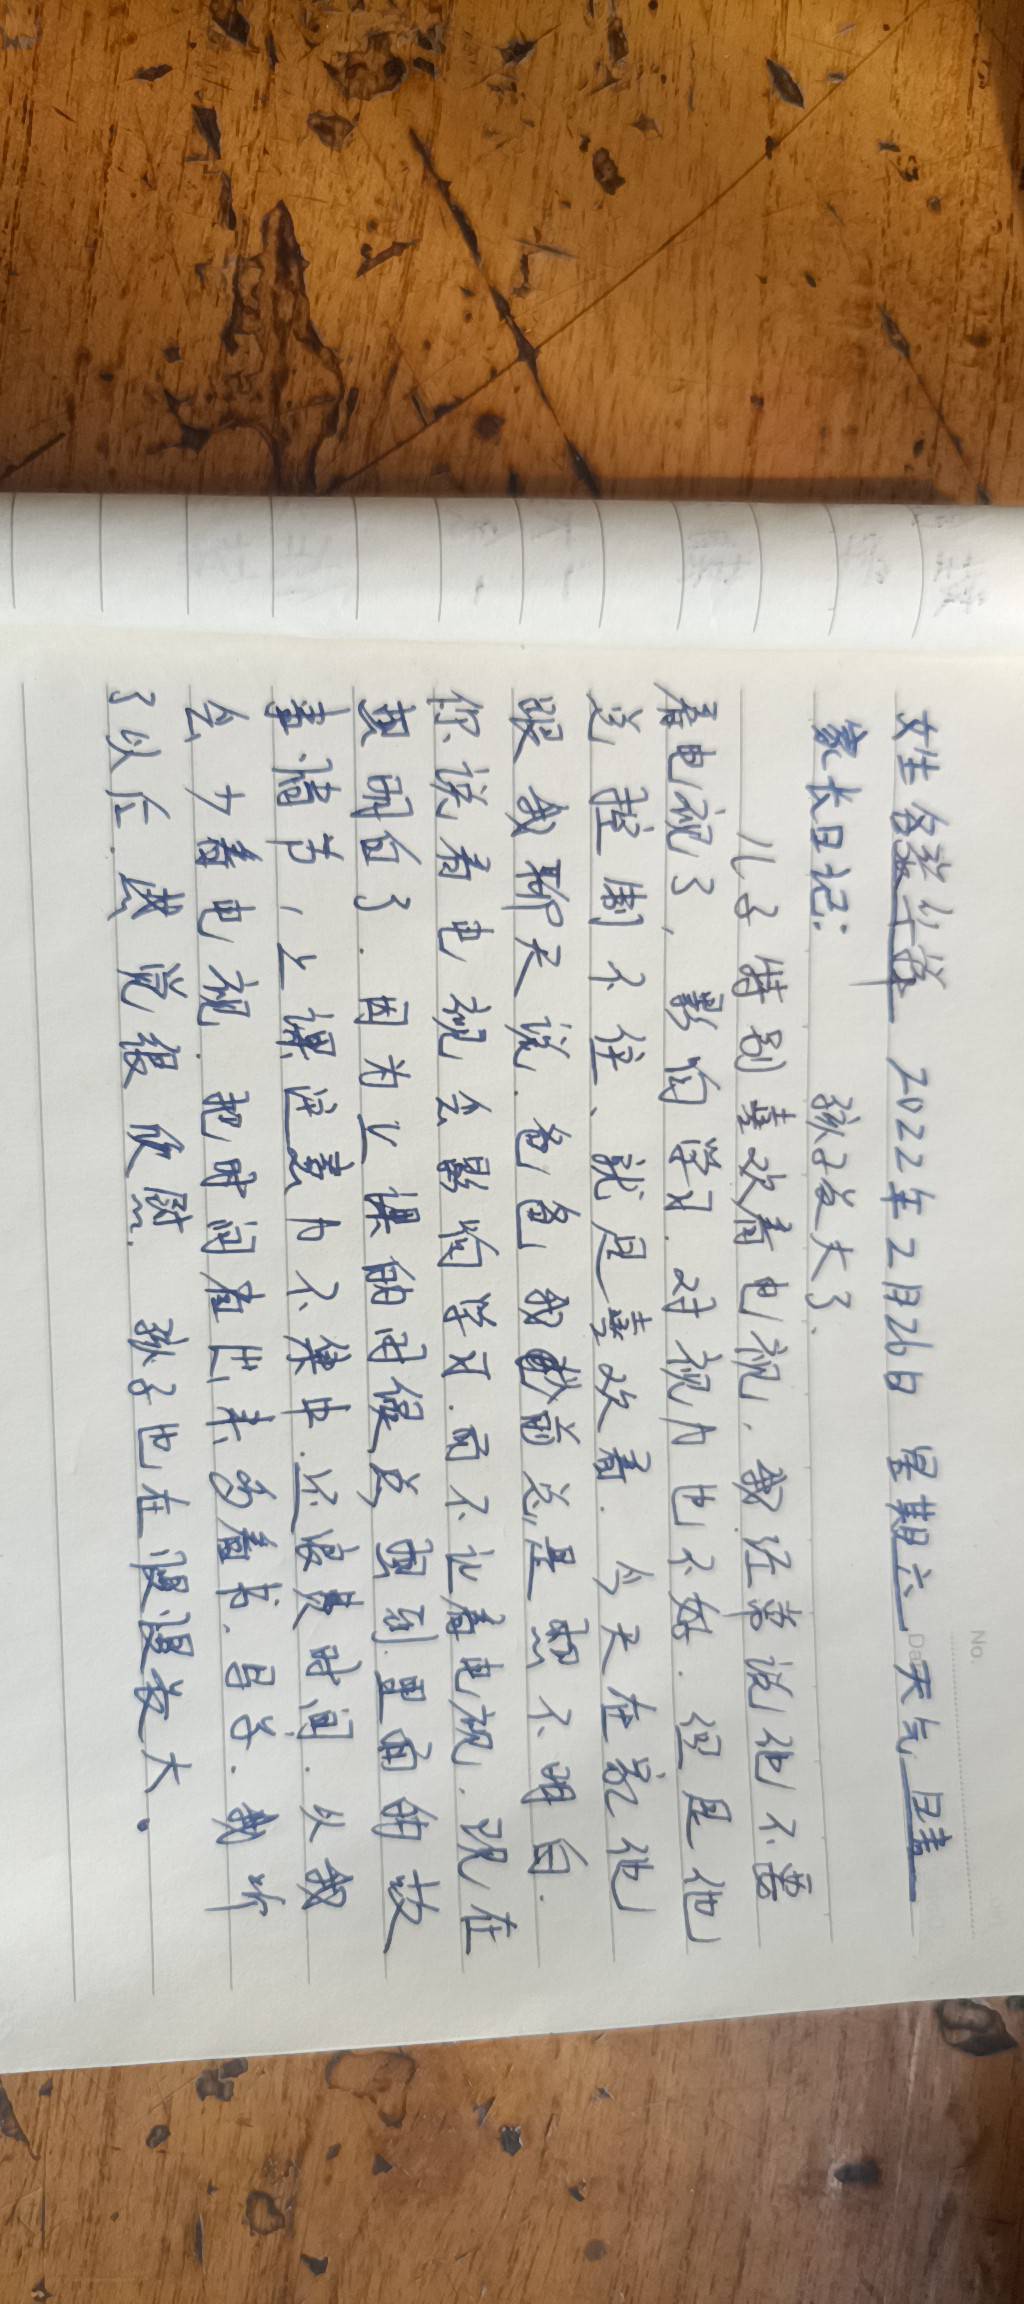 2022年2月26日 星期六 天气 晴
家长日记: 孩子长大了.
儿子特别喜欢看电视. 我经常说他不要
看电视了, 影响学习. 对视力也不好. 但是他
总控制不住、就是喜欢看. 今天在家他
跟我聊天说. 爸爸我以前总是想不明白.
你说看电视会影响学习. 而不让看电视. 现在
我明白了. 因为上课的时候总想到里面的故
事情节, 上课注意力不集中. 还浪费时间. 以我
会少看电视. 把时间省出来多看书. 写字. 我听
了以后. 感觉很欣慰. 孩子也在慢慢长大.
No.